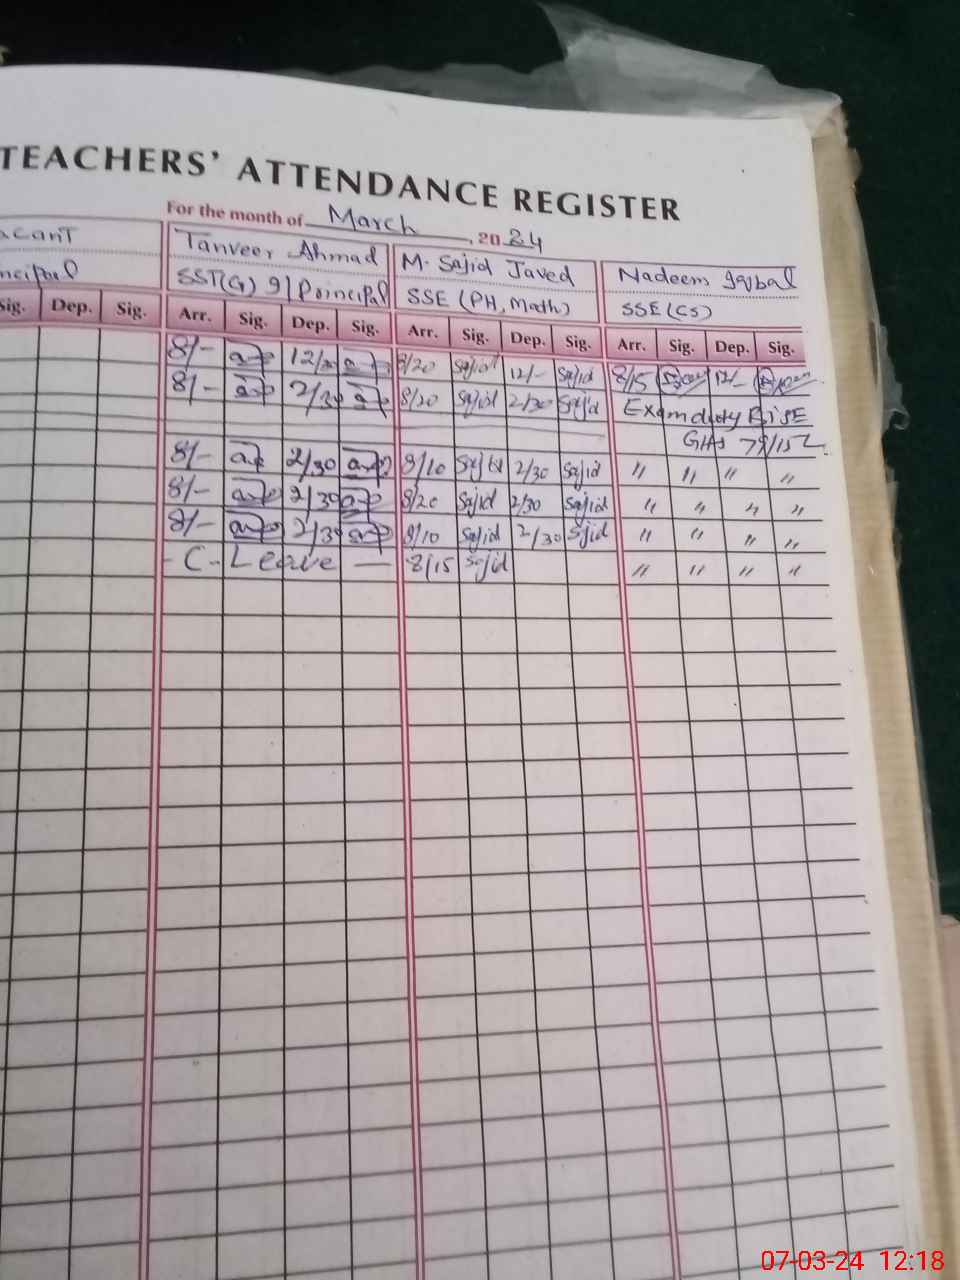 TEACHERS' ATTENDANCE REGISTER
For the month of March, 2024
Tanveer Ahmad M. Sajid Javed Nadeem Iqbal
SST(G) 9/Principal SSE (PH, Math) SSE (CS)
Sig. Dep. Sig. Arr. Sig. Dep. Sig. Arr. Sig. Dep. Sig. Arr. Sig. Dep. Sig.
8/- 8/20 Sajid 12/- Sajid 8/15 12/-
8/- 2/30 8/20 Sajid 2/30 Sajid Exam duty BISE
8/- 2/30 8/10 Sajid 2/30 Sajid " " " "
8/- 2/30 8/20 Sajid 2/30 Sajid " " " "
8/- 2/30 8/10 Sajid 2/30 Sajid " " " "
- C - Leave — 8/15 Sajid " " " "
07-03-24 12:18